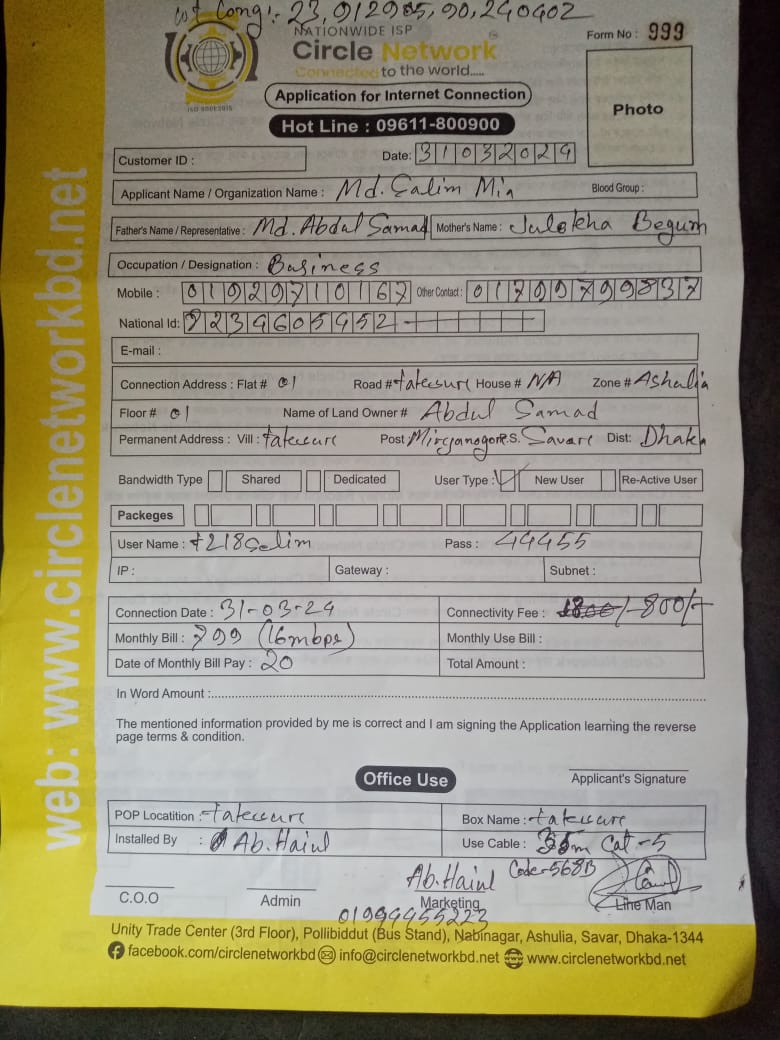 23.912905, 90.240402
NATIONWIDE ISP
Circle Network
Connected to the world.....
ISO 9001:2015
Form No : 999
Application for Internet Connection
Photo
Hot Line : 09611-800900
Customer ID :
Date: 31032024
Applicant Name / Organization Name : Md. Salim Mia Blood Group :
Father's Name / Representative : Md. Abdul Samad Mother's Name : Julekha Begum
Occupation / Designation : Business
Mobile : 01929710167 Other Contact : 01799799837
National Id: 9234605452
E-mail :
Connection Address : Flat # 01 Road # tatesure House # N/A Zone # Ashulia
Floor # 01 Name of Land Owner # Abdul Samad
Permanent Address : Vill : tatesure Post P.S. Savar Dist: Dhaka
Bandwidth Type Shared Dedicated User Type : New User Re-Active User
Packeges
User Name : t218Selim Pass : 44455
IP : Gateway : Subnet :
Connection Date : 31-03-24 Connectivity Fee : 800/-
Monthly Bill : 799 (16mbps) Monthly Use Bill :
Date of Monthly Bill Pay : 20 Total Amount :
In Word Amount :
The mentioned information provided by me is correct and I am signing the Application learning the reverse
page terms & condition.
Office Use
Applicant's Signature
POP Locatition : tatesure Box Name : tatesure
Installed By : Ab. Haiul Use Cable : 35m Cat-5
Ab. Haiul Code-568B
C.O.O Admin Marketing Line Man
01999955223
Unity Trade Center (3rd Floor), Pollibiddut (Bus Stand), Nabinagar, Ashulia, Savar, Dhaka-1344
facebook.com/circlenetworkbd info@circlenetworkbd.net www.circlenetworkbd.net
web: www.circlenetworkbd.net